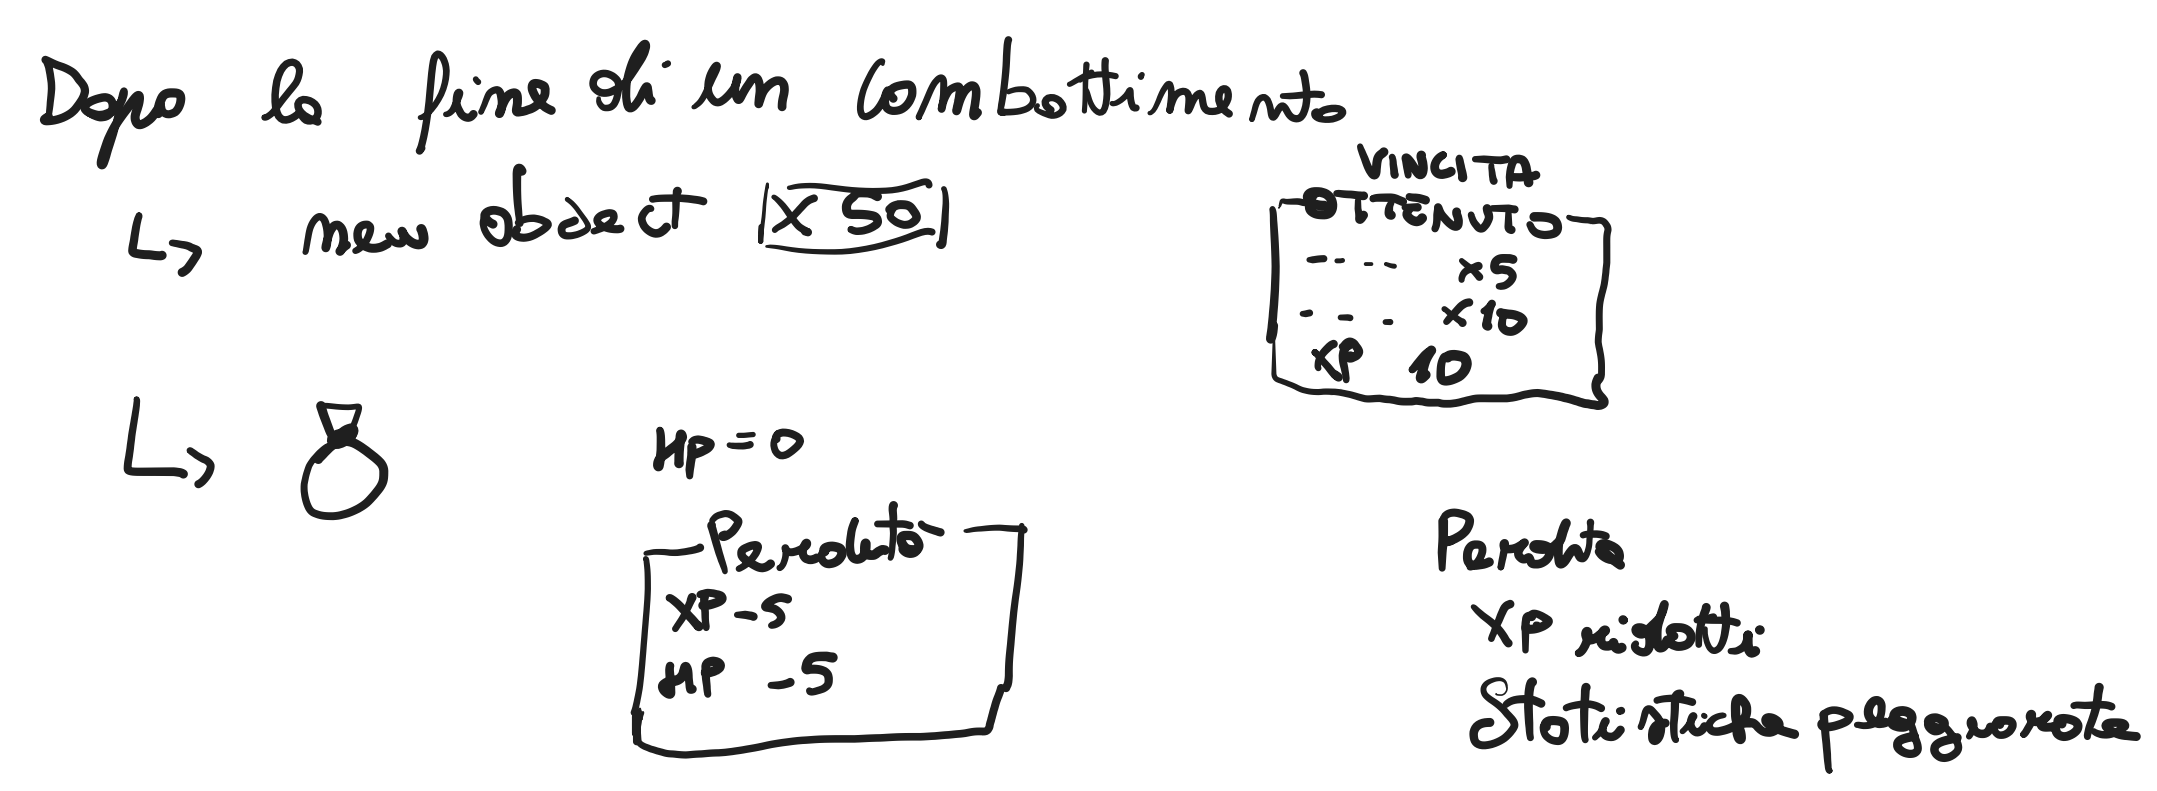 Dopo la fine di un combattimento
new object x 50
VINCITA
OTTENUTO
---- x5
--- x10
XP 10
HP = 0
Perduto
XP -5
HP -5
Perdita
XP ridotti
Statistiche peggiorate